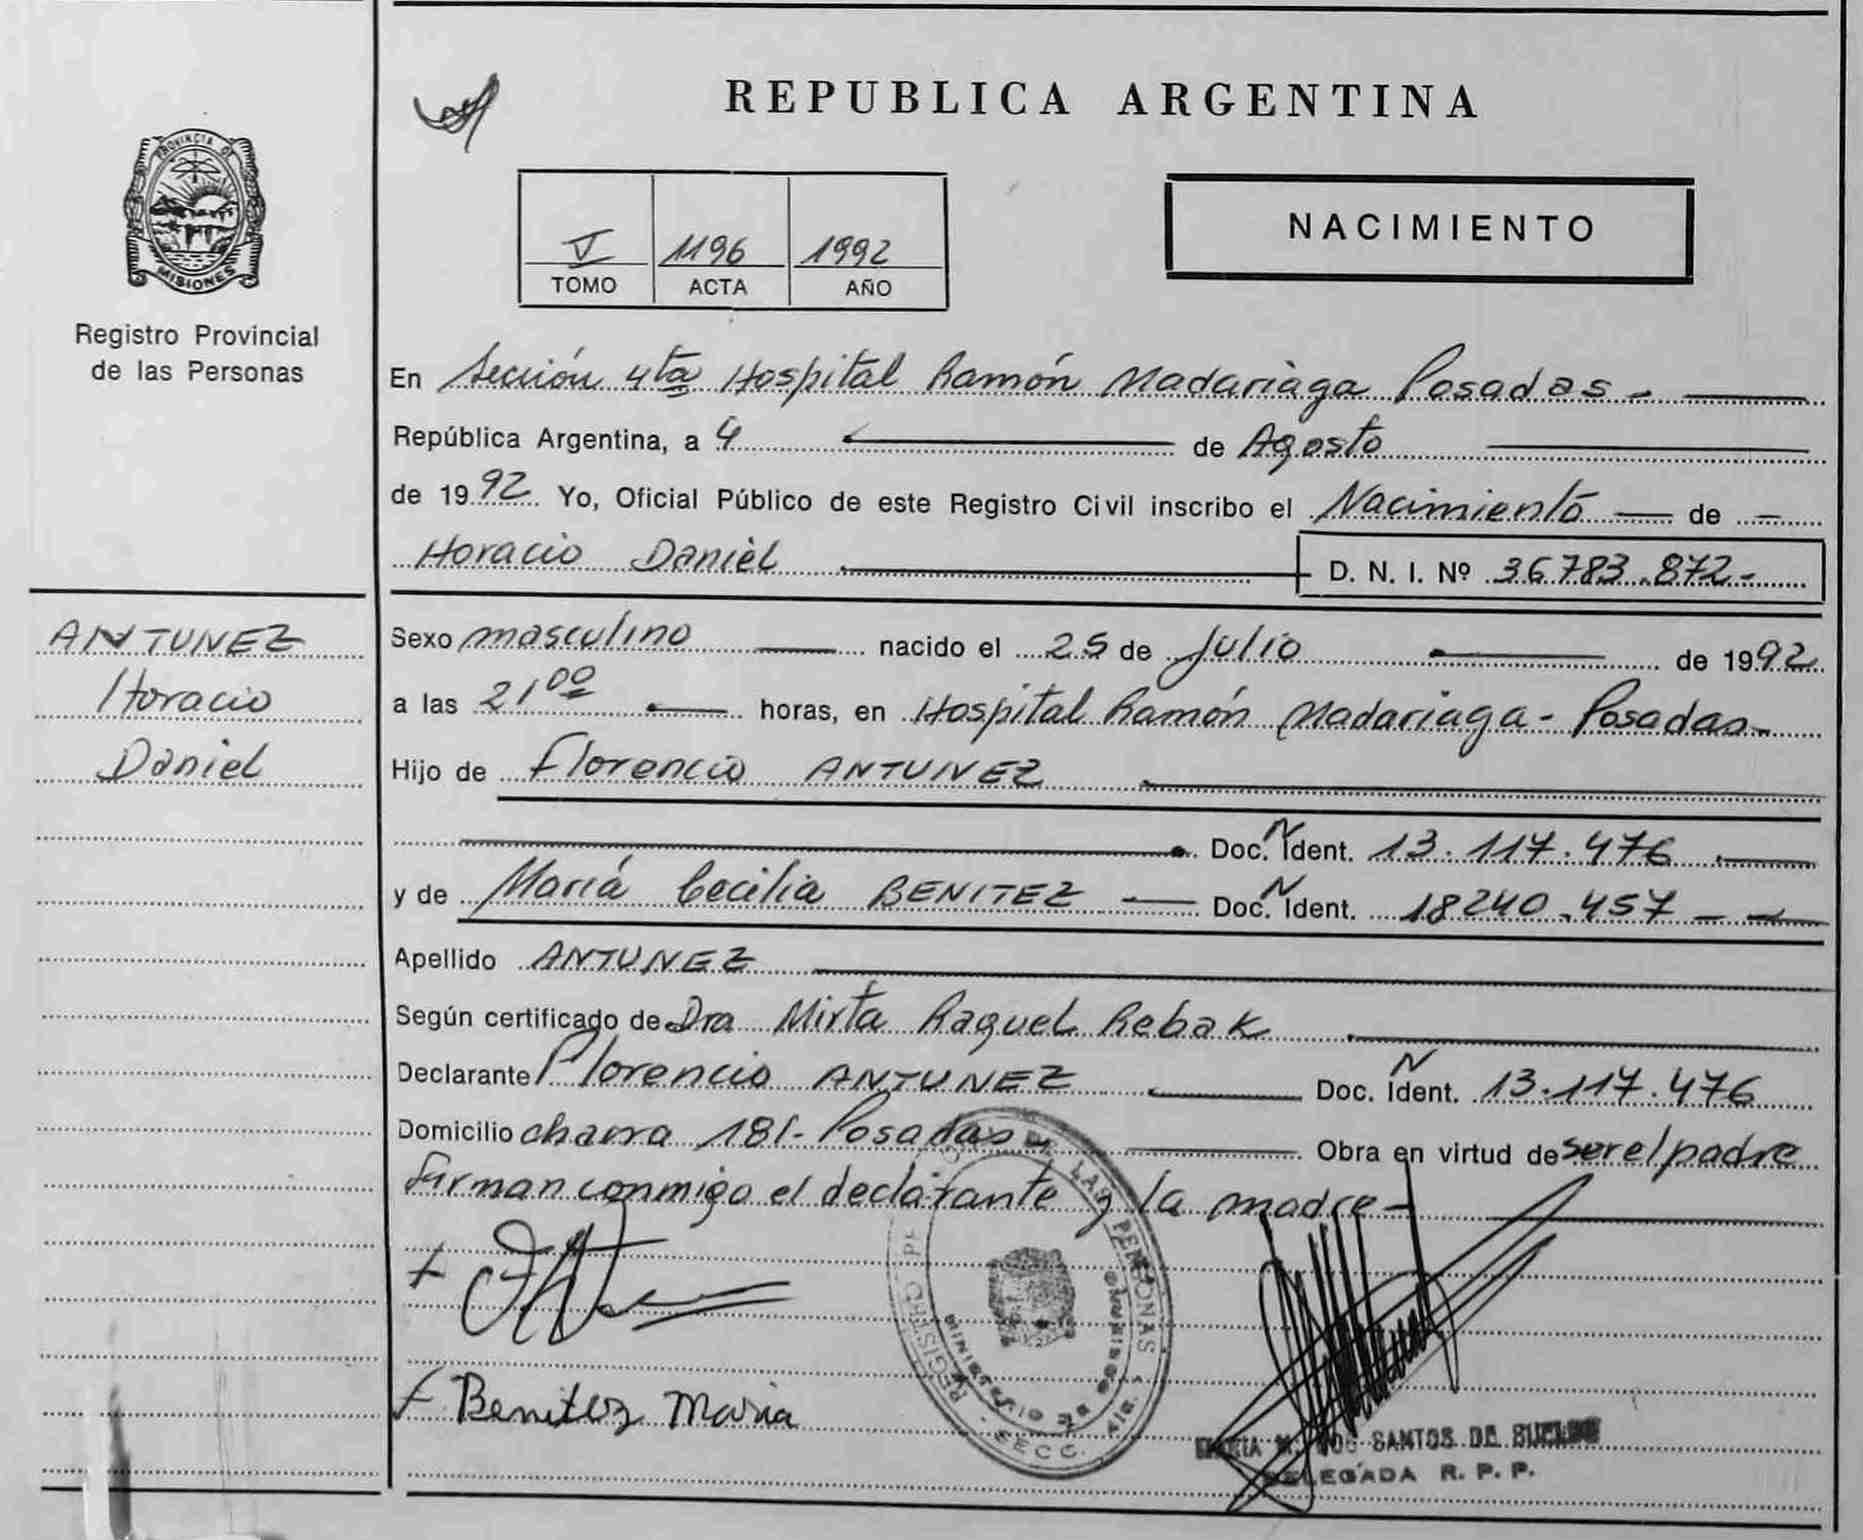 REPUBLICA ARGENTINA
PROVINCIA DE
MISIONES
Registro Provincial
de las Personas
V 1196 1992
TOMO ACTA AÑO
NACIMIENTO
En Sección 4ta Hospital Ramón Madariaga Posadas -
República Argentina, a 4 de Agosto
de 1992 Yo, Oficial Público de este Registro Civil inscribo el Nacimiento de -
Horacio Daniel D. N. I. Nº 36783.872-
ANTUNEZ
Horacio
Daniel
Sexo masculino nacido el 25 de Julio de 1992
a las 21 00 horas, en Hospital Ramón Madariaga - Posadas -
Hijo de Florencio ANTUNEZ
Doc. N Ident. 13.117.476
y de María Cecilia BENITEZ Doc. N Ident. 18240.457 -
Apellido ANTUNEZ
Según certificado de Dra Mirta Raquel Rebak
Declarante Florencio ANTUNEZ Doc. N Ident. 13.117.476
Domicilio chacra 181- Posadas - Obra en virtud de ser el padre
firman conmigo el declarante y la madre -
Benitez Maria
REGISTRO DE LAS PERSONAS
SECC. 4ta.
SANTOS DE
DELEGADA R. P. P.